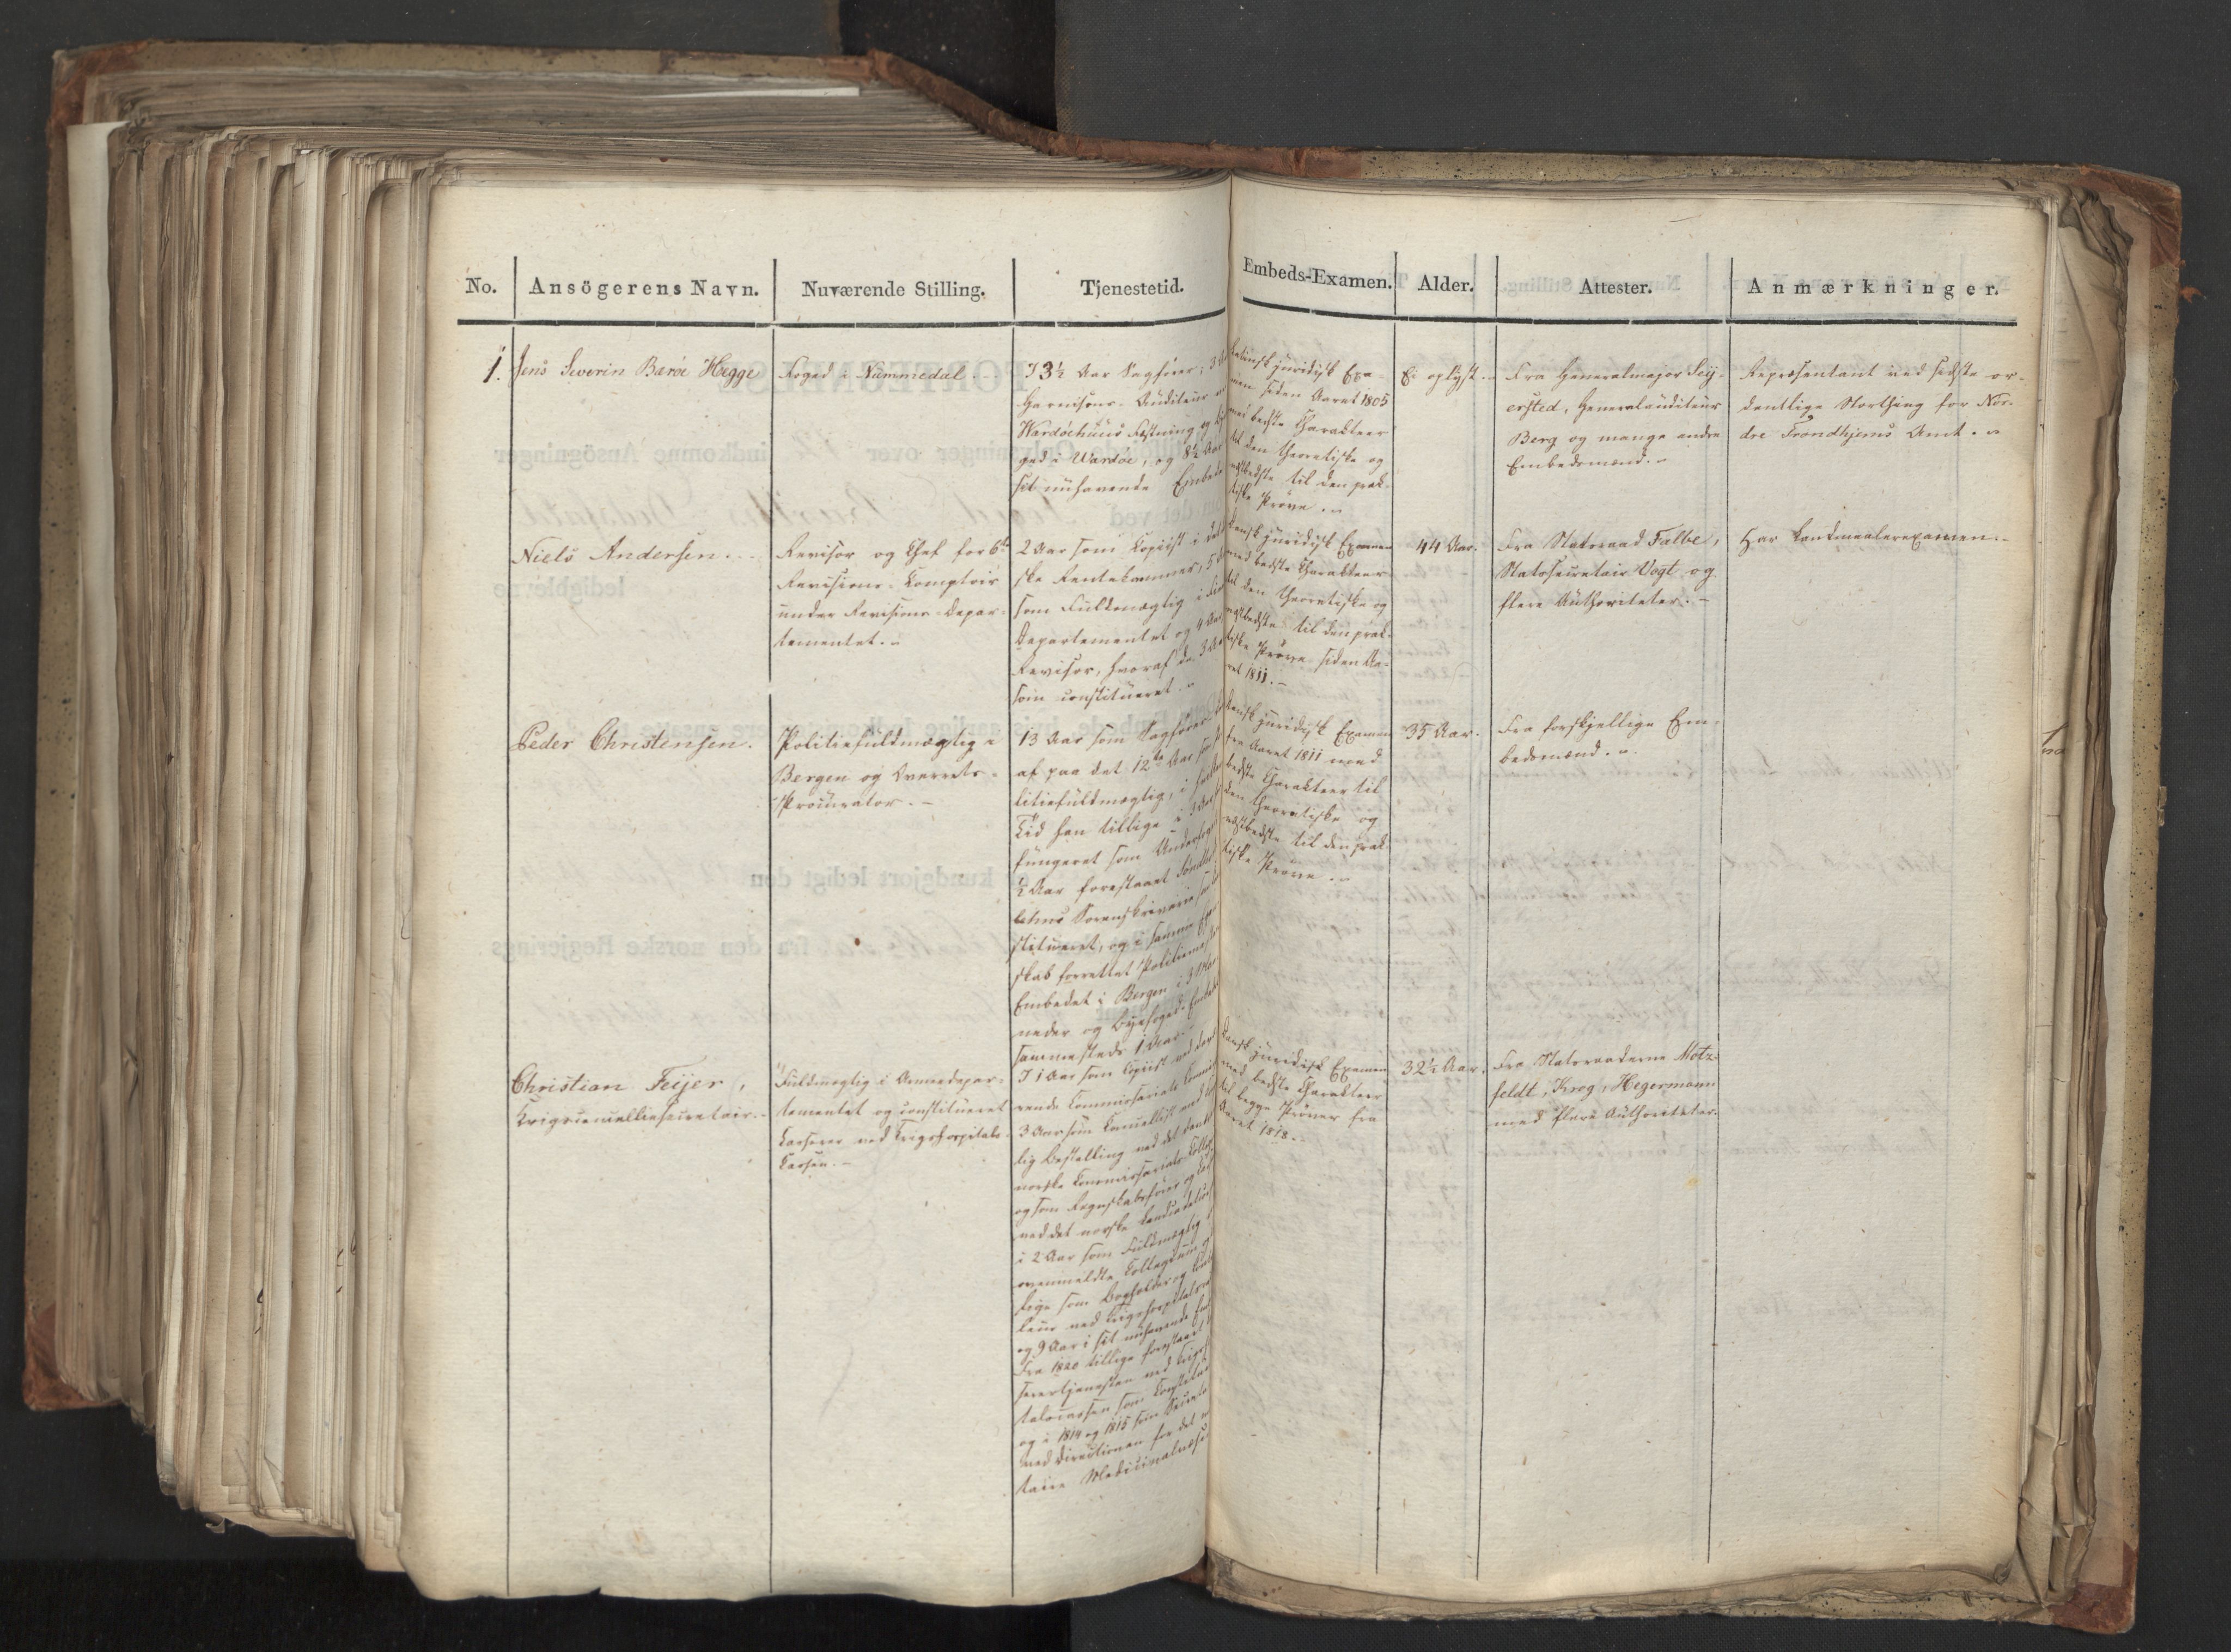 No.
Ansögerens Navn.
Nuværende Stilling.
Tjenestetid.
Embeds-Examen.
Alder.
Attester.
Anmærkninger.
1.
Jens Severin Baröe Hegge
Foged i Nummedal.
I 3½ Aar Sagfører, 3
Garnisons-Auditeur
Wardöehuus Fæstning og
ged i Wardöe, og 8½ Aar
sit nuhavende Embede
Latinsk juridisk Exa-
men siden Aaret 1805
med bedste Charakteer
til den theoretiske og
næstbedste til den prak-
tiske Prøve.
Ei oplyst.
Fra Generalmajor Sey-
ersted, Generalauditeur
Berg og mange andre
Embedsmænd.
Repræsentant ved sidste or-
dentlige Storthing for Nor-
dre Trondhjems Amt.
Niels Andersen.
Revisor og Chef for 6te
Revisions-Comptoir
under Revisions-Depar-
tementet.
2 Aar som Copiist i det
ske Rentekammer, 5
som Fuldmægtig i
Departementet og 4 Aar
Revisor, hvoraf de 3 Aar
som constitueret.
Dansk juridisk Examen
med bedste Charakteer
til den theoretiske og
næstbedste til den prak-
tiske Prøve siden Aa-
ret 1811.
44 Aar.
Fra Statsraad Falbe,
Statssecretair Vogt og
flere Authoriteter.
Har Landmaalerexamen.
Peder Christensen.
Politiefuldmægtig i
Bergen og Overrets-
Procurator.
13 Aar som Sagfører
af paa det 12te Aar
litiefuldmægtig, i
Tid han tillige i 3 Aar
fungeret som
½ Aar forestaaet
Sorenskriverie
stitueret, og i samme
skab forrettet Politiemester
Embedet i Bergen i 3 Maa-
neder og Byefoged-Embedet
sammesteds 1 Aar.
Dansk juridisk Examen
fra Aaret 1811 med
bedste Charakteer til
den theoretiske og
næstbedste til den prak-
tiske Prøve.
35 Aar.
Fra forskjellige Em-
bedsmænd.
Christian Feijer,
Krigscancelliesecretair.
Fuldmægtig i Armeedepar-
tementet og constitueret
Casserer ved Krigshospitals-
Cassen.
I 1 Aar som Copiist ved
rende Commissariats
3 Aar som Cancellist med
lig Bestalling ved det
norske Commissariats-
og som Regnskabsfører og
ved det norske
i 2 Aar som Fuldmægtig i
ovenmeldte Collegium
lige som Bogholder og
leur ved Krigshospitals
og 9 Aar i sit nuhavende
Fra 1820 tillige forestaaet
serertjenesten ved Krigs
talscassen som Constitueret
og i 1814 og 1815 som Secretair
ved Directionen for det
taire Medicinalvæsen
Dansk juridisk Examen
med bedste Charakteer
til begge Prøver fra
Aaret 1818.
32½ Aar.
Fra Statsraaderne Motz-
feldt, Krog, Hegermann
med flere Authoriteter.